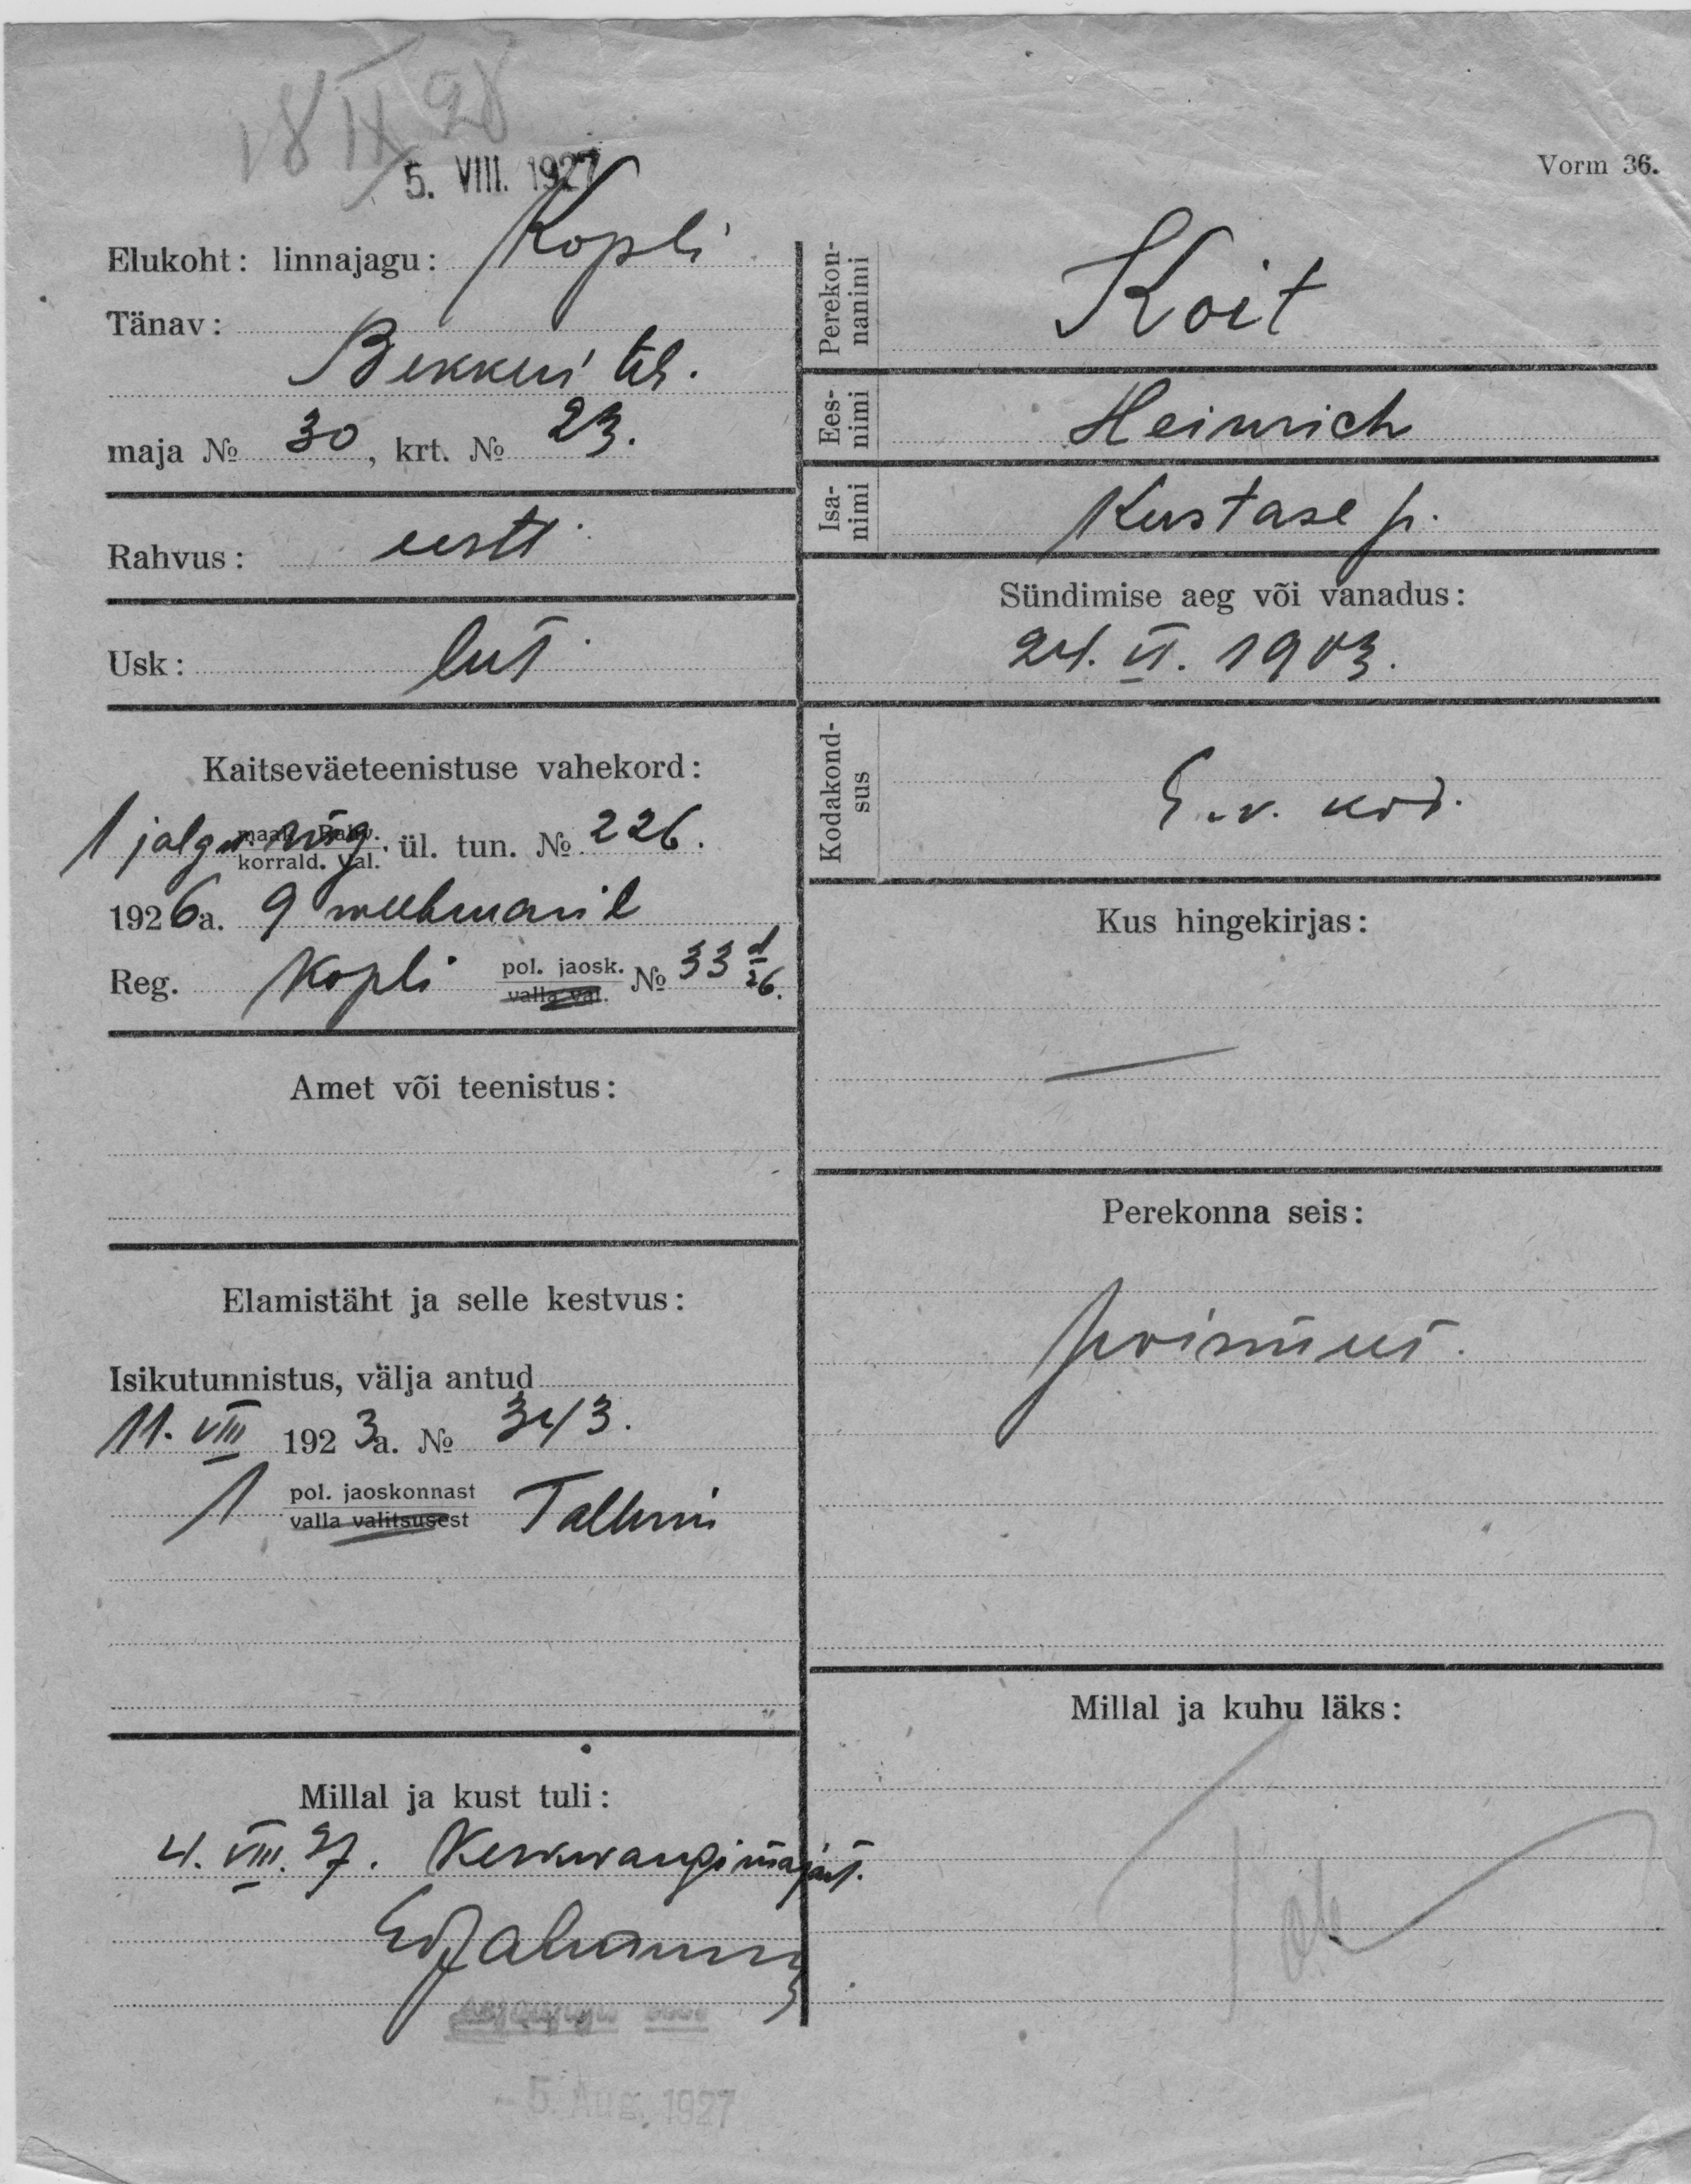 18 IX 28
5. VIII. 1927
Vorm 36.
Elukoht: linnajagu: Kopli
Tänav:
Bekkeri teh.
maja № 30, krt. № 23.
Rahvus: eestl.
Usk: lut.
Kaitseväeteenistuse vahekord:
1 jalgw. rüg. ül. tun. № 226.
korrald. Val.
1926 a. 9 weebruaril
Reg. Kopli pol. jaosk. № 33 d/26.
valla val.
Amet või teenistus:
Elamistäht ja selle kestvus:
Isikutunnistus, välja antud
11. VIII 1923 a. № 343.
1 pol. jaoskonnast Tallinn
valla valitsusest
Millal ja kust tuli:
4. VIII. 27. Keskwangimajast.
5. Aug. 1927
Perekon-
nanimi
Koit
Ees-
nimi
Heinrich
Isa-
nimi
Kustase p.
Sündimise aeg või vanadus:
24. VI. 1903.
Kodakond-
sus
E. v. kod.
Kus hingekirjas:
—
Perekonna seis:
poismees.
Millal ja kuhu läks: